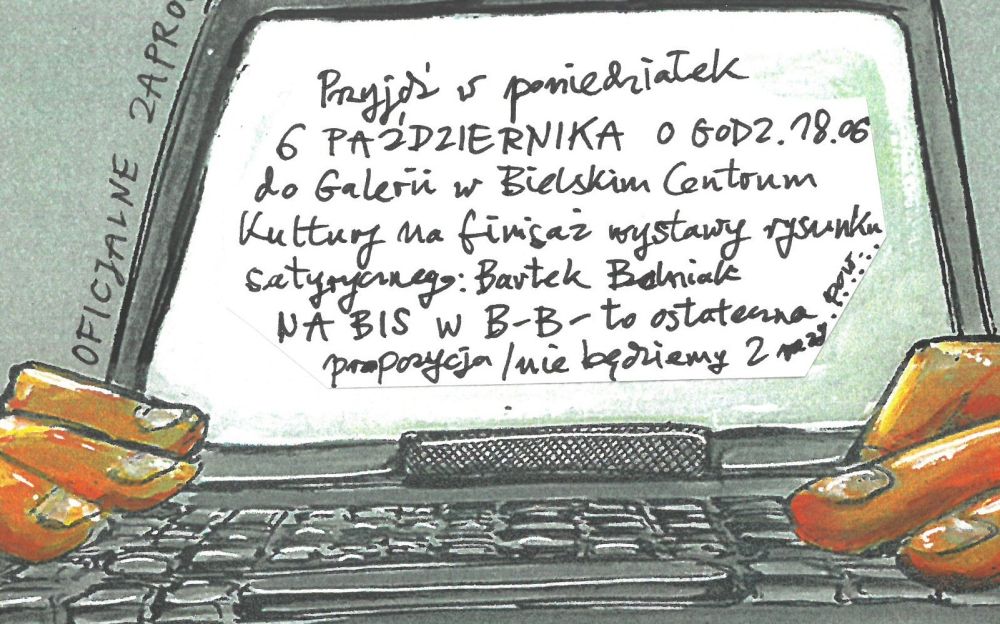 OFICJALNE ZAPRO
Przyjdź w poniedziałek
6 PAŹDZIERNIKA O GODZ. 18.06
do Galerii w Bielskim Centrum
Kultury na finisaż wystawy rysunku
satyrycznego: Bartek Belniak
NA BIS W B-B- to ostateczna
propozycja /nie będziemy 2 razy pow.....